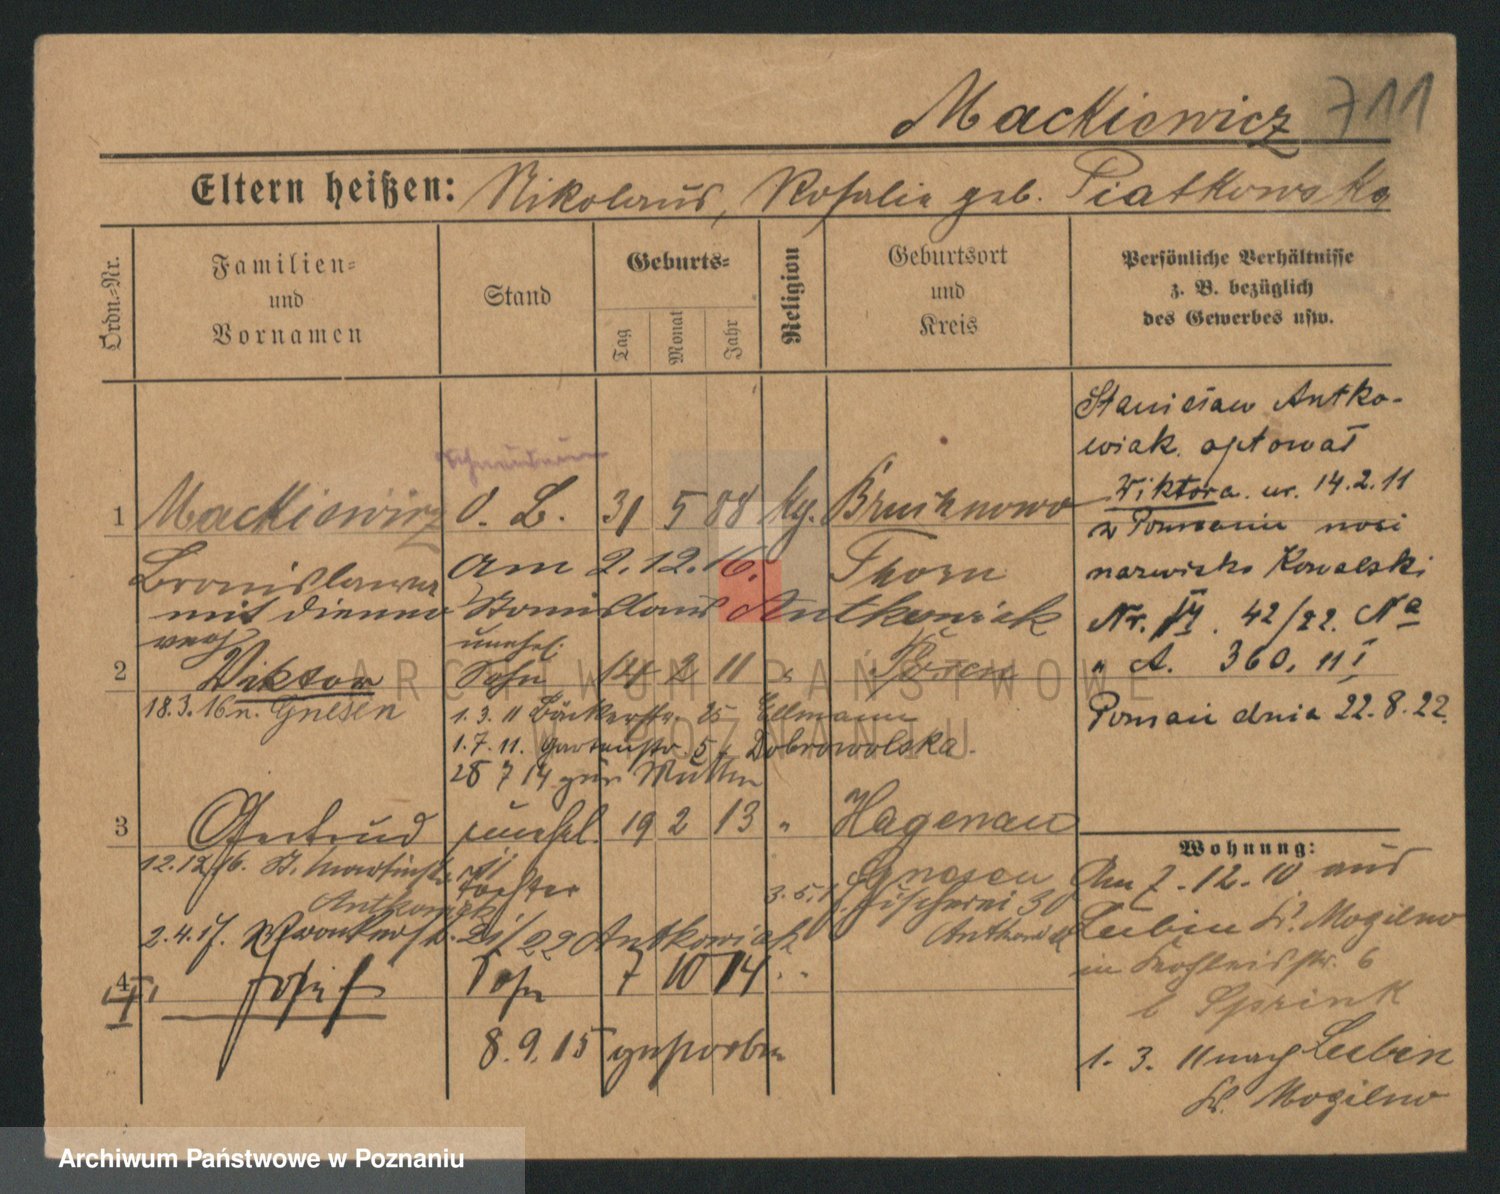 Mackiewicz 711
Eltern heißen: Nikolaus, Rosalie geb. Piatkowska
Ordn.-Nr.
Familien-
und
Vornamen
Stand
Geburts-
Tag
Monat
Jahr
Religion
Geburtsort
und
Kreis
Persönliche Verhältnisse
z. B. bezüglich
des Gewerbes usw.
1 Mackiewicz O. B. 31 5 88 Kg.
Bronislawa am 2.12.16. Thorn
mit Stanislaus Antkowiak
unehel.
2 Viktor Sohn 14 2 11 " Posen
18.3.16 n. Gnesen
1. 3. 11 Bäckerstr. 25 Ellmann
1. 7. 11. Gartenstr. 5 Dobrowolska.
28 7 14 zur Mutter
3 Gertrud unehel. 19 2 13 " Hagenau
12.12.16. St. Martinstr.
Tochter
Gnesen
Antkowiak
2.4.17. 22 Antkowiak
4 Josef Sohn 7 10 14 "
8. 9. 15 gestorben
Stanisław Antko-
wiak optował
Wiktora. ur. 14.2.11
w Poznaniu nosi
nazwisko Kowalski
Nr. 42/22. Na
" A. 360. 11 I
Poznań dnia 22.8.22.
Wohnung:
Am 7.12.10 aus
Lubin Kr. Mogilno
in 6
b Sprink
1. 3. 11 nach Lubin
Kr. Mogilno
ARCHIWUM PAŃSTWOWE
W POZNANIU
Archiwum Państwowe w Poznaniu